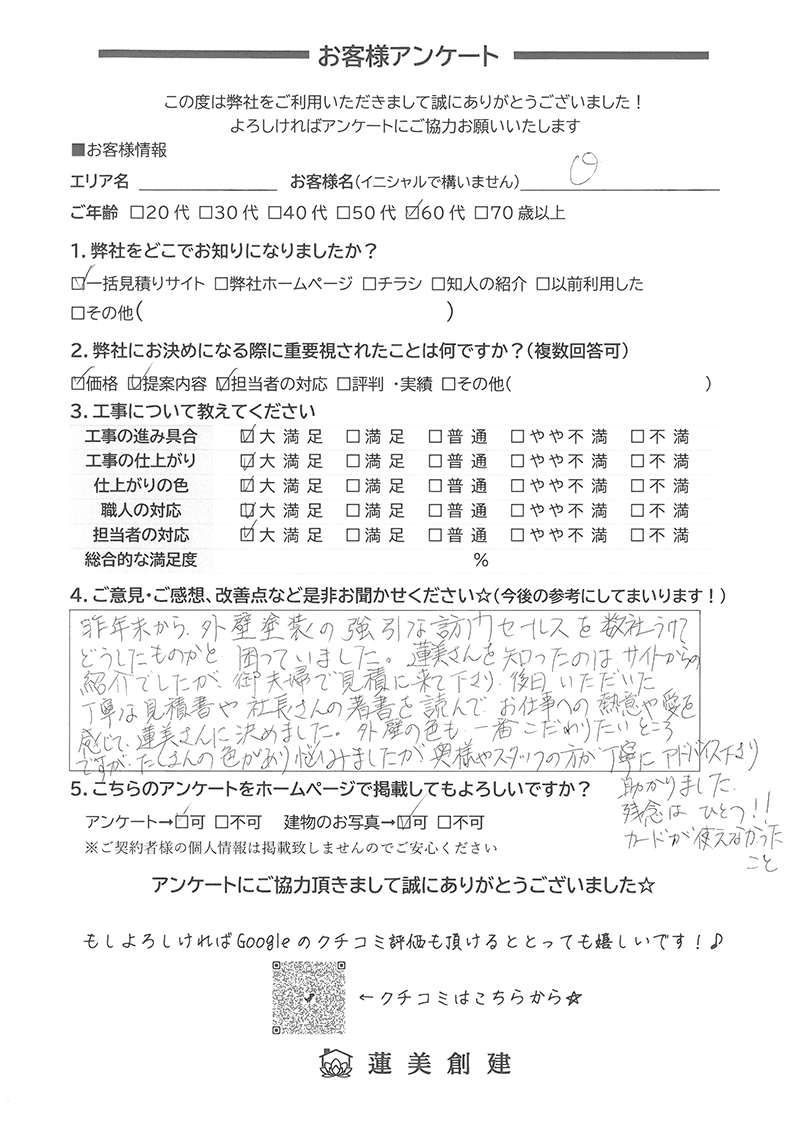 お客様アンケート
この度は弊社をご利用いただきまして誠にありがとうございました！
よろしければアンケートにご協力お願いいたします
■お客様情報
エリア名 ____________ お客様名(イニシャルで構いません) O
ご年齢 □20代 □30代 □40代 □50代 ☑60代 □70歳以上
1. 弊社をどこでお知りになりましたか？
☑一括見積りサイト □弊社ホームページ □チラシ □知人の紹介 □以前利用した
□その他( )
2. 弊社にお決めになる際に重要視されたことは何ですか？(複数回答可)
☑価格 ☑提案内容 ☑担当者の対応 □評判・実績 □その他( )
3. 工事について教えてください
工事の進み具合 ☑大満足 □満足 □普通 □やや不満 □不満
工事の仕上がり ☑大満足 □満足 □普通 □やや不満 □不満
仕上がりの色 ☑大満足 □満足 □普通 □やや不満 □不満
職人の対応 ☑大満足 □満足 □普通 □やや不満 □不満
担当者の対応 ☑大満足 □満足 □普通 □やや不満 □不満
総合的な満足度 %
4. ご意見・ご感想、改善点など是非お聞かせください☆(今後の参考にしてまいります！)
昨年末から、外壁塗装の強引な訪問セールスを数社うけて
どうしたものかと困っていました。蓮美さんを知ったのは、サイトからの
紹介でしたが、御夫婦で見積に来て下さり、後日いただいた
丁寧な見積書や社長さんの著書を読んで、お仕事への熱意や愛を
感じて、蓮美さんに決めました。外壁の色も、一番こだわりたいところ
ですが、たくさんの色があり悩みましたが、奥様やスタッフの方が丁寧にアドバイス下さり
助かりました。
残念はひとつ!!
カードが使えなかった
こと
5. こちらのアンケートをホームページで掲載してもよろしいですか？
アンケート→☑可 □不可 建物のお写真→☑可 □不可
※ご契約者様の個人情報は掲載致しませんのでご安心ください
アンケートにご協力頂きまして誠にありがとうございました☆
もしよろしければGoogleのクチコミ評価も頂けるととっても嬉しいです！♪
←クチコミはこちらから☆
蓮美創建